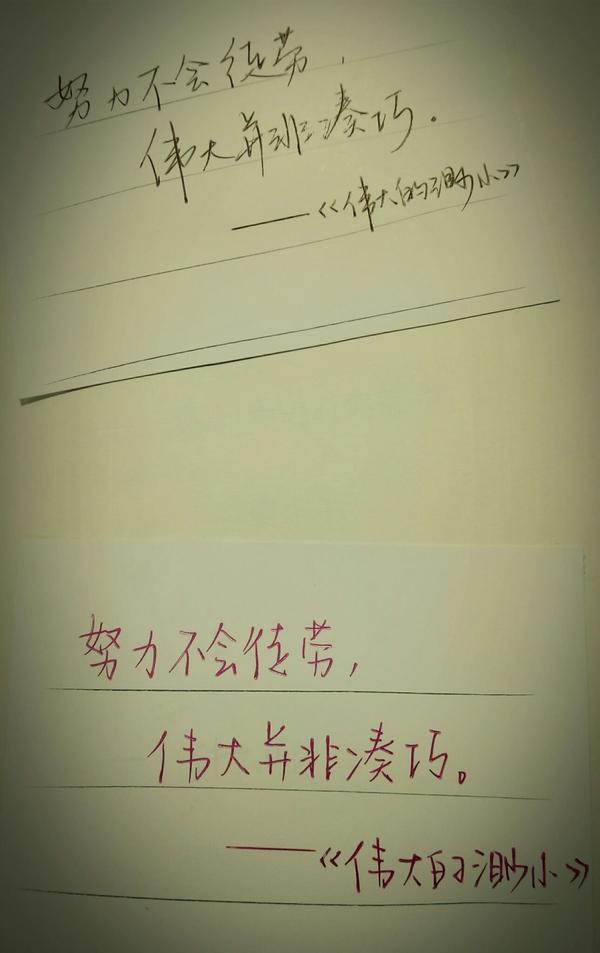 努力不会徒劳，
伟大并非凑巧。
——《伟大的渺小》
努力不会徒劳，
伟大并非凑巧。
——《伟大的渺小》